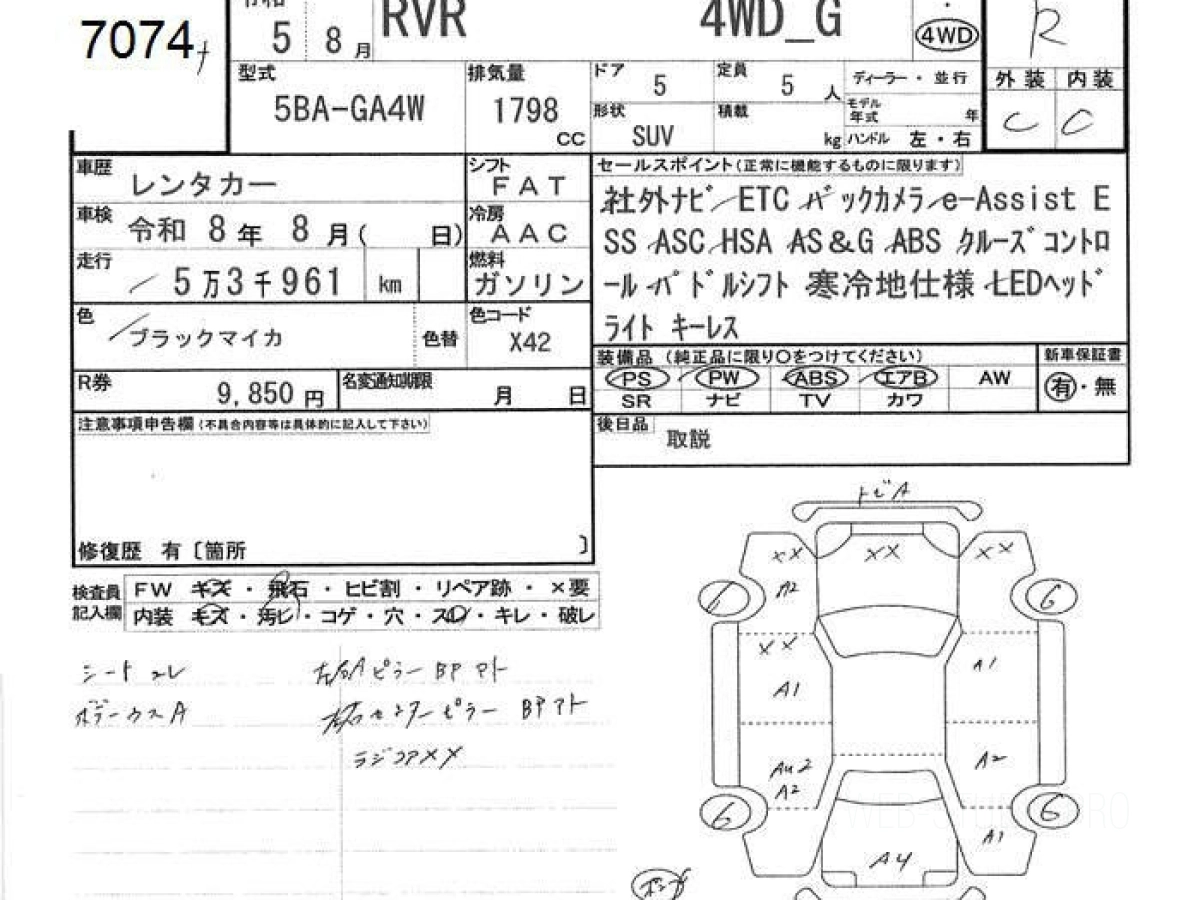 7074
令和 5 8月 RVR 4WD_G 4WD R
型式 5BA-GA4W 排気量 1798 CC
ドア 5 定員 5 人 ディーラー・並行
形状 SUV 積載 kg モデル年式 年 ハンドル 左・右
外装 内装
C C
車歴 レンタカー シフト FAT
車検 令和 8年 8月( 日) 冷房 AAC
走行 5万3千961 km 燃料 ガソリン
色 ブラックマイカ 色替 色コード X42
R券 9,850円 名変通知期限 月 日
セールスポイント(正常に機能するものに限ります)
社外ナビ ETC バックカメラ e-Assist E
SS ASC HSA AS&G ABS クルーズコントロ
ール パドルシフト 寒冷地仕様 LEDヘッド
ライト キーレス
装備品 (純正品に限り○をつけてください) 新車保証書
PS PW ABS エアB AW 有・無
SR ナビ TV カワ
後日品 取説
注意事項申告欄(不具合内容等は具体的に記入して下さい)
修復歴 有〔箇所 〕
検査員記入欄
FW キズ・飛石・ヒビ割・リペア跡・×要
内装 キズ・汚れ・コゲ・穴・スレ・キレ・破レ
シート コレ
左右Aピラー BPアト
センターピラー BPアト
ラジコアXX
トビA
XX XX XX
A2
6 6
XX
A1 A1
AU2
A2 A2
6 6
A1
A4